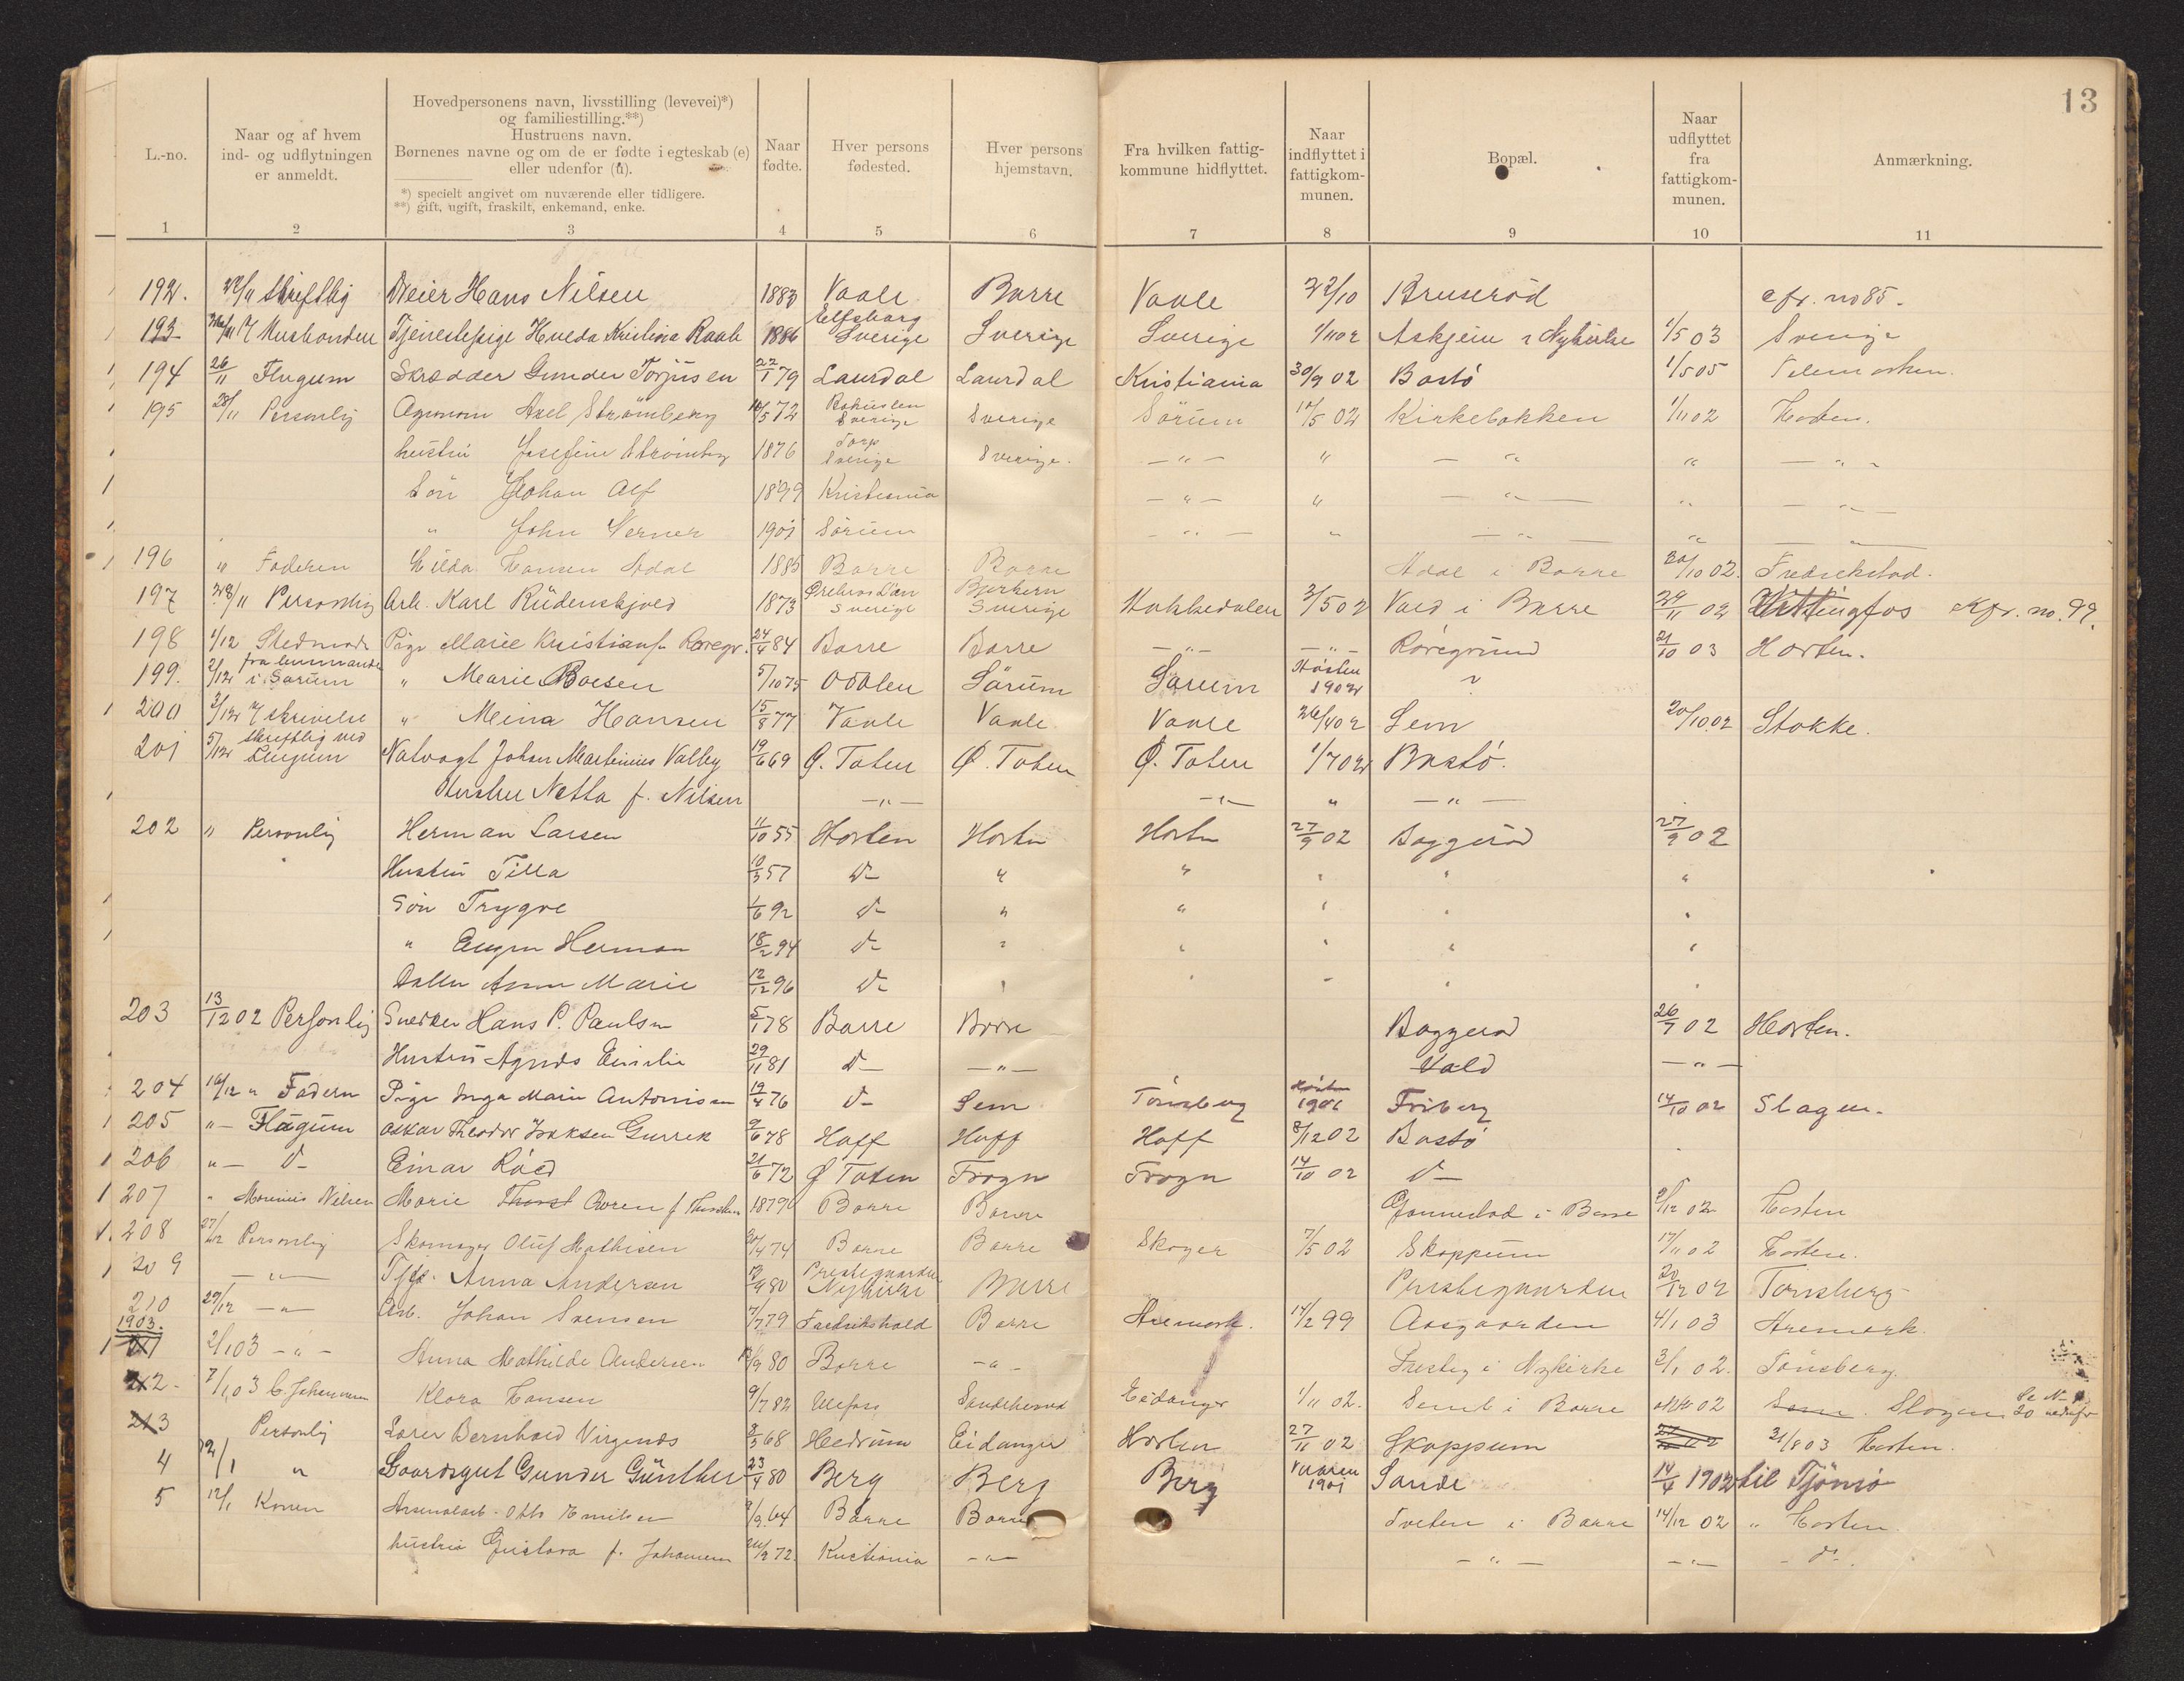 13
L.-no.
Naar og af hvem
ind- og udflytningen
er anmeldt.
Hovedpersonens navn, livsstilling (levevei)*)
og familiestilling.**)
Hustruens navn.
Børnenes navne og om de er fødte i egteskab (e)
eller udenfor (u).
*) specielt angivet om nuværende eller tidligere.
**) gift, ugift, fraskilt, enkemand, enke.
Naar
fødte.
Hver persons
fødested.
Hver persons
hjemstavn.
Fra hvilken fattig-
kommune hidflyttet.
Naar
indflyttet i
fattigkom-
munen.
Bopæl.
Naar
udflyttet
fra
fattigkom-
munen.
Anmærkning.
1 2 3 4 5 6 7 8 9 10 11
192. Skriftlig Hans Nilsen 1883 Vaale Borre Vaale 22/10 Bruserød cfr. no 85.
193 Husbonden Tjenestepige Hulda Kristina 1886 Elfsborg Sverige Sverige Sverige 1/11 02 Askjem i Nykirke 1/5 03 Sverige
194 26/11 Flugum Skrædder Gunder Torjusen 22/1 79 Laurdal Laurdal Kristiania 30/9 02 Bastö 1/5 05 Telemarken.
195 28/11 Personlig Agronom Axel Strömberg 72 Bohuslen Sverige Sverige Sörum 02 Kirkebakken 1/11 02 Horten.
hustru Josefine Strömberg 1876 Torp Sverige Sverige. — " — " — " — " — " —
Sön Johan Alf 1899 Kristiania — " — " — " — " — " —
" John Verner 1901 Sörum — " — " — " — " — " —
196 " Faderen Hilda Hansen Adal 1885 Borre Borre Adal i Borre 30/10 02. Fredrikstad.
197 28/11 Personlig Arb. Karl Rüdenskjold 1873 Örebro Län Sverige Sverige 3/5 02 Vold i Borre 29/11 02 Vittingfos cfr. no. 99.
198 1/12 Stedmoder Pige Marie Kristians. Röregr. 24/4 84 Borre Borre — " — — " — Röregrund 21/10 03 Horten.
199. 2/12 fra lensmanden i Sörum " Marie Boesen 5/10 75 Odalen Sörum Sörum Hösten 1902 ?
200 3/12 skrivelse " Meina Hansen 15/8 77 Vaale Vaale Vaale 26/4 02 Sem 20/10 02 Stokke.
201 5/12 skriftlig ved Flugum Natvagt Johan Martinius Valby 19/6 69 Ø. Toten Ø. Toten Ø. Toten 1/7 02 Bastö.
Hustru Netta f. Nilsen — " — — " — " — " —
202 " Personlig Herman Larsen 11/10 55 Horten Horten Horten 27/9 02 Baggerød 27/9 02
Hustru Tilla 10/3 57 do " " " " "
Sön Trygve 1/6 92 do " " " " "
" Eugen Herman 18/2 94 do " " " " "
Datter Anna Marie 12/12 96 do " " " " "
203 13/12 02 Personlig Snedker Hans P. Paulsen 5/1 78 Borre Borre Baggerød 26/7 02 Horten.
Hustru Agnes Emilie 29/11 81 do — " — Vold — " —
204 16/12 " Fadern Pige Inga Marie Antonisen 19/4 76 do Sem Tönsberg Hösten 1901 Friberg 14/10 02 Slagen.
205 " — Flugum Oskar Theodor Isaksen 9/6 78 Hoff Hoff Hoff 8/12 02 Bastö
206 " — do Einar Röed 21/6 72 Ø Toten Trogn Trogn 14/10 02 do
207 " Marinius Nilsen Marie 1879 Borre Borre i Borre 9/12 02 Horten
208 27/12 Personlig Skomager Oluf Mathisen 74 Borre Borre Skoger 7/5 02 Skoppum 17/11 02 Horten.
209 — " — Tjp. Anna Andersen 80 Prestegaarden Nykirke Borre Prestegaarden 20/12 02 Tønsberg
210 29/12 — " — Arb. Johan Svensen 7/7 79 Fredrikshald Borre Aremark. 14/2 99 Aasgaarden 4/1 03 Aremark.
1903.
211 2/1 03 — " — Anna Mathilde Andersen 80 Borre — " — i Nykirke 3/1 02. Tönsberg.
212. 7/1 03 Klara Hansen 9/7 82 Ulefos Sandeherred Eidanger 1/11 02. Semb i Borre 02 Sem. Slagen Se No 20 nedenfor
213 Personlig Lærer Bernhard 68 Hedrum Eidanger Horten 27/11 02 Skoppum 31/8 03 Horten.
4 12/1 " Gaardsgut Gunder Günther 23/4 80 Berg Berg Berg Vaaren 1901 Sande 14/4 1902 til Tjömö
5 12/1 Konen Arsenalarb. Otto Emilsen 64 Borre Borre Tveten i Borre 14/12 02 " Horten
hustru Gustava f. Johannesen 72. Kristiania — " — — " — — " — do.